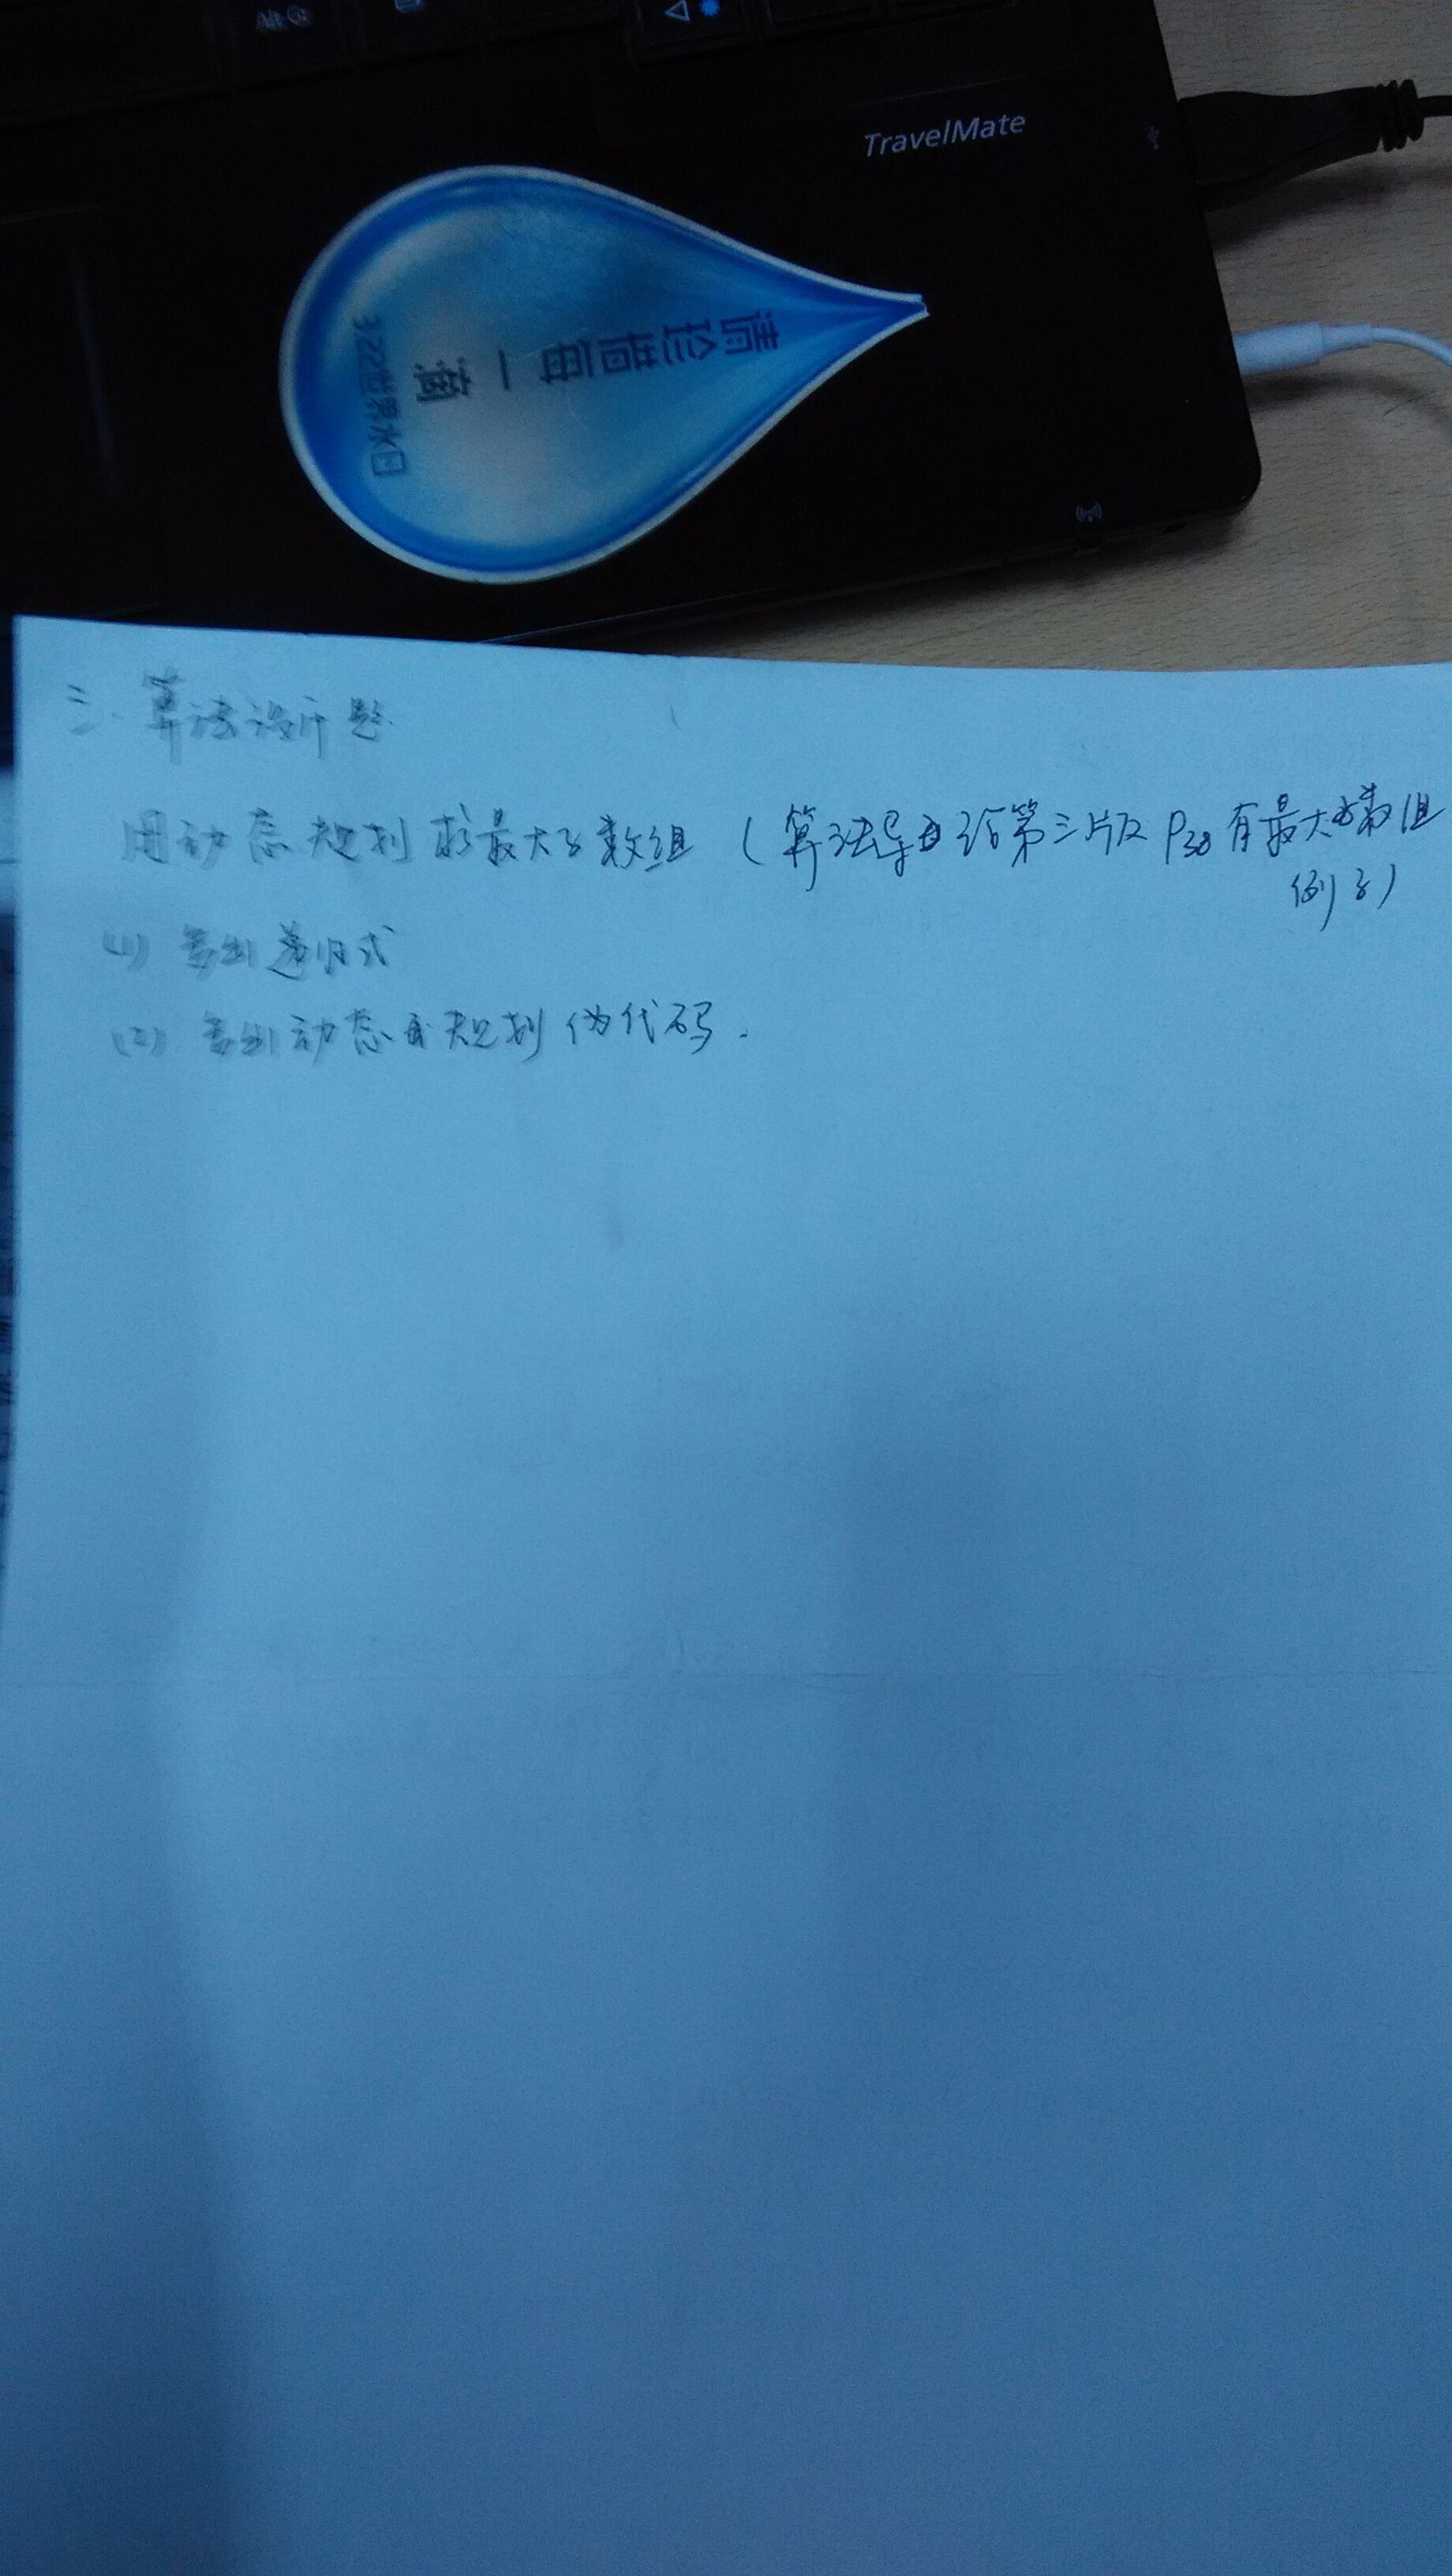 Alt Gr
TravelMate
请珍惜每一滴
3.22世界水日
三. 算法设计题.
用动态规划求最大子数组 (算法导论第三版 P38 有最大子数组
例子)
(1) 写出递归式
(2) 写出动态规划伪代码.